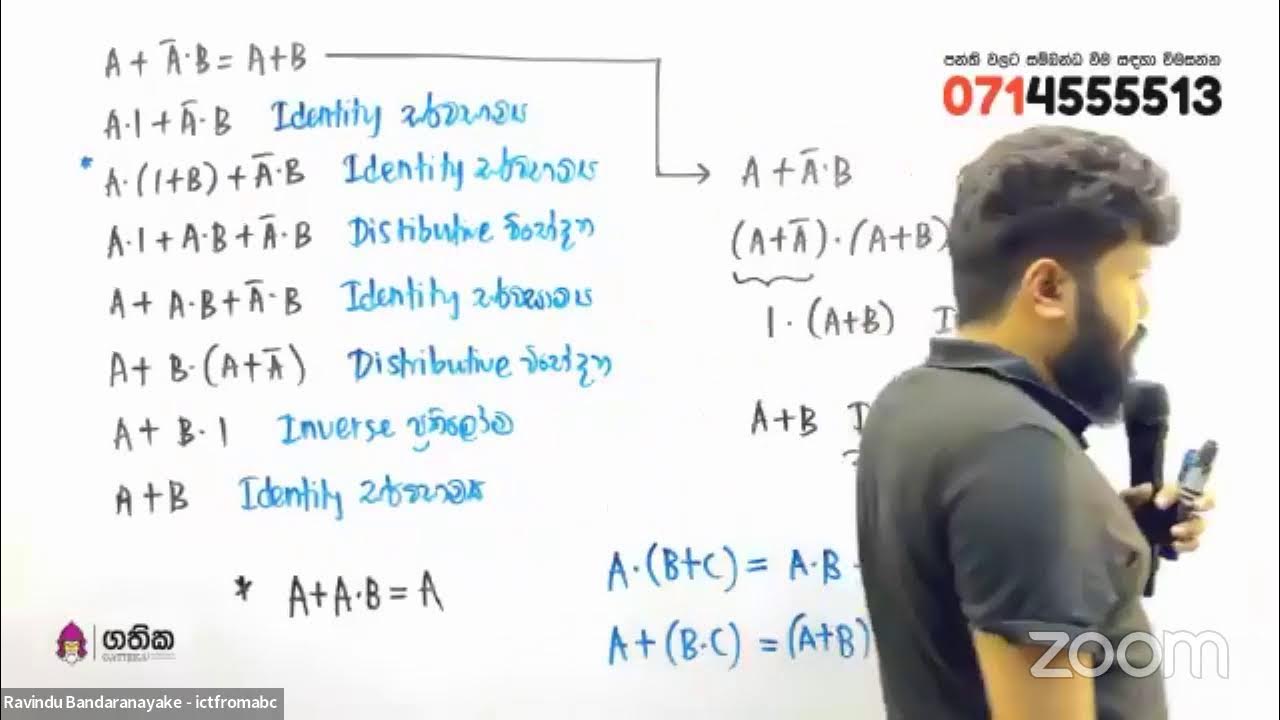 A + Ā·B = A+B
A·1 + Ā·B Identity
* A·(1+B) + Ā·B Identity
A·1 + A·B + Ā·B Distibutive
A + A·B + Ā·B Identity
A + B·(A+Ā) Distributive
A + B·1 Inverse ප්‍රතිලෝම
A+B Identity
* A+A·B = A
A + Ā·B
(A+Ā)·(A+B)
1·(A+B) I
A+B I
A·(B+C) = A·B
A+(B·C) = (A+B)
පන්ති වලට සම්බන්ධ වීම සඳහා විමසන්න
0714555513
ගතික
zoom
Ravindu Bandaranayake - ictfromabc